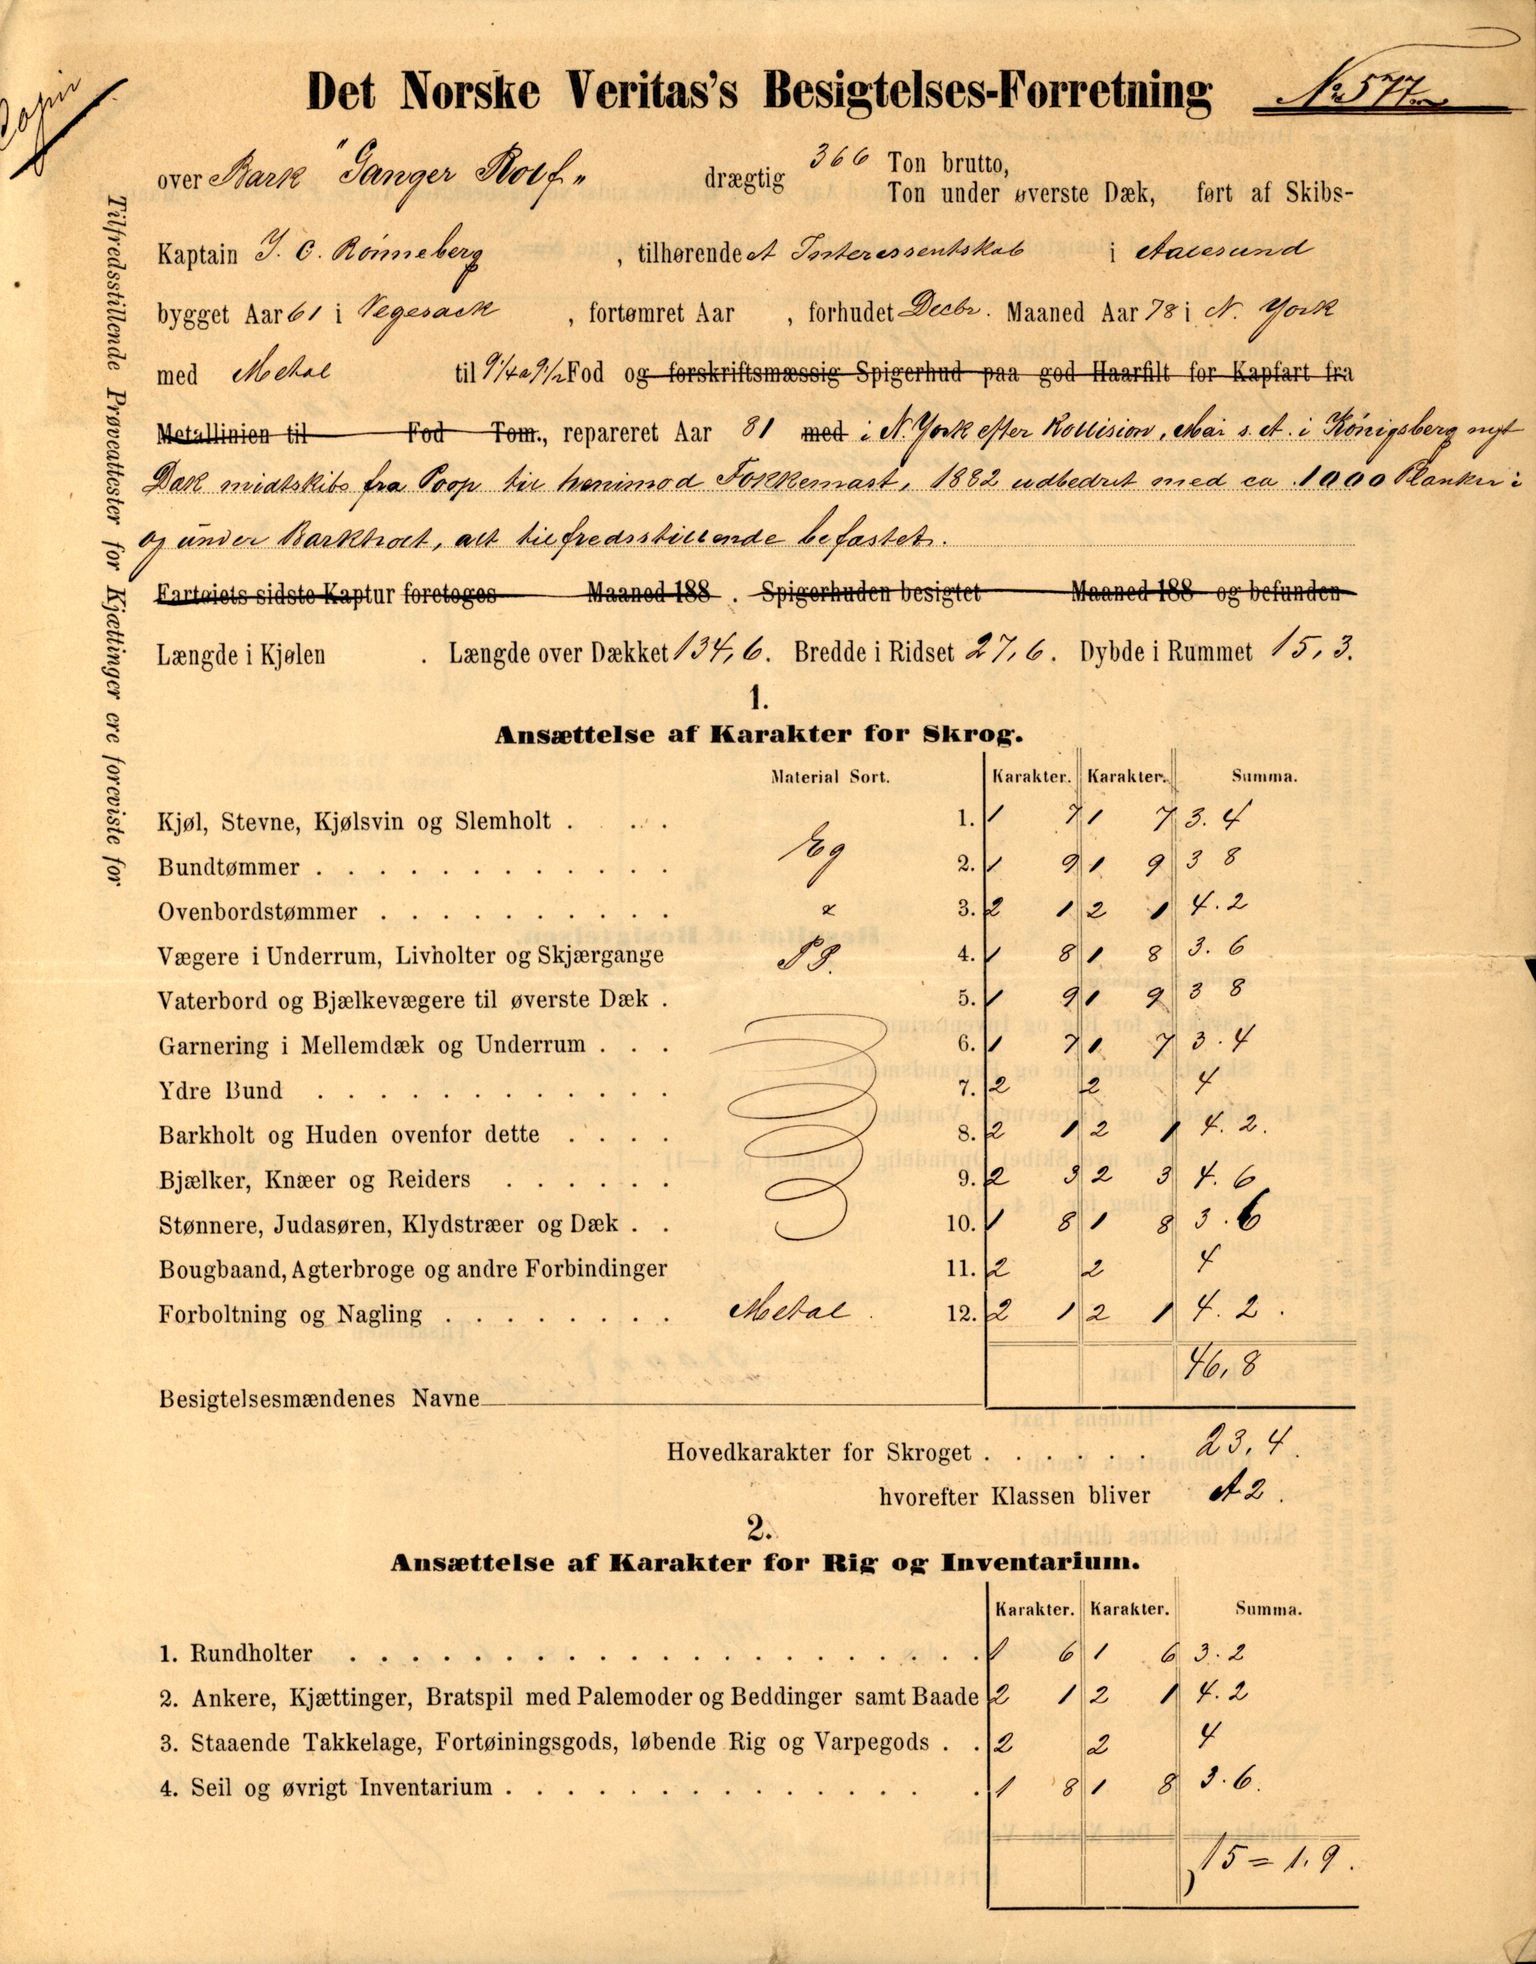 Copie
Det Norske Veritas's Besigtelses-Forretning No 577
over Bark "Ganger Rolf" drægtig 366 Ton brutto,
Ton under øverste Dæk, ført af Skibs-
Kaptain J. C. Rönneberg, tilhørende et Interessentskab i Aalesund
bygget Aar 61 i Vegesack, fortømret Aar , forhudet Decbr. Maaned Aar 78 i N. York
med Metal til 9 1/4 a 9 1/2 Fod og forskriftsmæssig Spigerhud paa god Haarfilt for Kapfart fra
Metallinien til Fod Tom., repareret Aar 81 med i N. York efter Kollision, Mai s. A. i Königsberg nyt
Dæk midtskibs fra Poop til henimod Fokkemast, 1882 udbedret med ca. 1000 Planker i
og under Barkholt, alt tilfredsstillende befæstet.
Fartøiets sidste Kaptur foretoges Maaned 188 . Spigerhuden besigtet Maaned 188 og befunden
Længde i Kjølen . Længde over Dækket 134,6. Bredde i Ridset 27,6. Dybde i Rummet 15,3.
Tilfredsstillende Prøvattester for Kjættinger ere foreviste for
1.
Ansættelse af Karakter for Skrog.
Material Sort. Karakter. Karakter. Summa.
Kjøl, Stevne, Kjølsvin og Slemholt . . . 1. 1 7 1 7 3.4
Eg
Bundtømmer . . . . . . . . . . . . . 2. 1 9 1 9 3 8
Ovenbordstømmer . . . . . . . . . . 3. 2 1 2 1 4.2
Vægere i Underrum, Livholter og Skjærgange PP. 4. 1 8 1 8 3.6
Vaterbord og Bjælkevægere til øverste Dæk . 5. 1 9 1 9 3 8
Garnering i Mellemdæk og Underrum . . . 6. 1 7 1 7 3.4
Ydre Bund . . . . . . . . . . . . 7. 2 2 4
Barkholt og Huden ovenfor dette . . . . 8. 2 1 2 1 4.2.
Bjælker, Knæer og Reiders . . . . . . 9. 2 3 2 3 4.6
Stønnere, Judasøren, Klydstræer og Dæk . . 10. 1 8 1 8 3.6
Bougbaand, Agterbroge og andre Forbindinger 11. 2 2 4
Forboltning og Nagling . . . . . . . . Metal . 12. 2 1 2 1 4.2.
46,8
Besigtelsesmændenes Navne
Hovedkarakter for Skroget . . . . . . 23,4.
hvorefter Klassen bliver A2.
2.
Ansættelse af Karakter for Rig og Inventarium.
Karakter. Karakter. Summa.
1. Rundholter . . . . . . . . . . . . . . . 1 6 1 6 3.2
2. Ankere, Kjættinger, Bratspil med Palemoder og Beddinger samt Baade 2 1 2 1 4.2
3. Staaende Takkelage, Fortøiningsgods, løbende Rig og Varpegods . . 2 2 4
4. Seil og øvrigt Inventarium . . . . . . . . . . . . 1 8 1 8 3.6.
15 = 1.9.